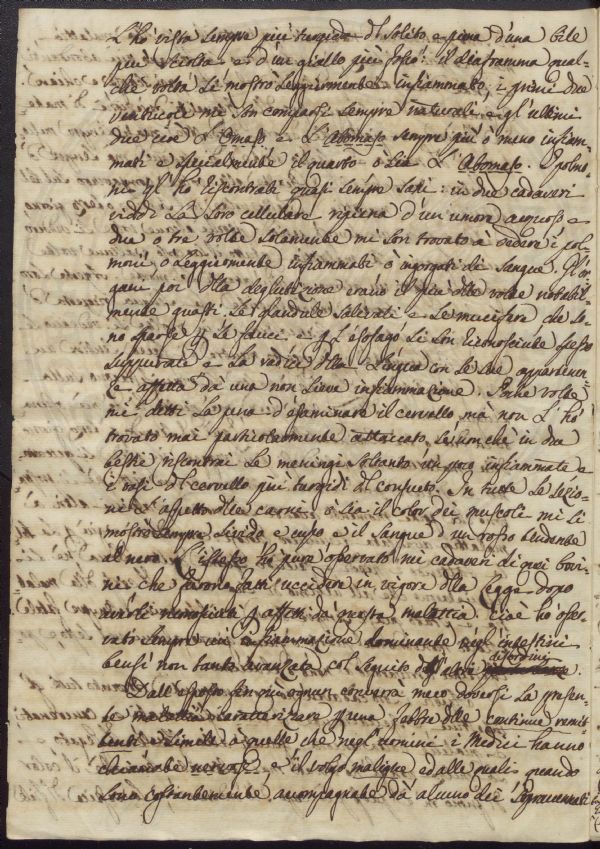 L'hò vista sempre più turgida del solito e piena d'una bile
più sciolta e d'un giallo più fosco: il diaframma qual-
che volta si mostrò leggiermente infiammato, i primi due
ventricoli mi son comparsi sempre naturali, e gl'ultimi
due cioè l'Omaso, e l'Abomaso sempre più o meno infiam-
mati e specialmente il quarto ò sia l'Abomaso. I polmo-
ni gl'hò riscontrati quasi sempre sani: in due cadaveri
viddi la loro cellulare ripiena d'un umore acquoso, e
due o tre volte solamente mi son trovato à vedere i pol-
moni ò leggiermente infiammati ò ingorgati di sangue. Gl'or-
gani poi della deglutizione erano il più delle volte notabil-
mente guasti. Le glandule salivali e le mucifere che so-
no sparse p le fauci e p l'esofago si son riconosciute spesso
suppurate e la radice della lingua con le sue appartenen-
ze affetta da una non lieve infiammazione. Sette volte
mi detti la pena d'esaminare il cervello, mà non l'hò
trovato mai particolarmente attaccato, se non che in due
bestie riscontrai le meningi soltanto un poco infiammate e
i vasi del cervello più turgidi del consueto. In tutte le sezio-
ni l'aspetto delle carni ò sia il color dei muscoli mi si
mostrò sempre livido e cupo e il sangue d'un rosso tendente
al nero. L'istesso hò pure osservato nei cadaveri di quei bovi-
ni che furono fatti uccidere in vigore della Legge dopo
averli verificati p affetti da questa malattia: cioè hò osser-
vato sempre una infiammazione dominante negl'intestini
bensì non tanto avanzata col seguito dell'altri disordini.
Dall'esposto fin qui ognun converrà meco doversi la presen-
te malattia caratterizzare p una febbre delle continue remit-
tenti e simile à quelle che negl'uomini i Medici hanno
chiamate nervose, e il volgo maligne ed alle quali quando
sono costantemente accompagnate da alcuno dei sopraccennati